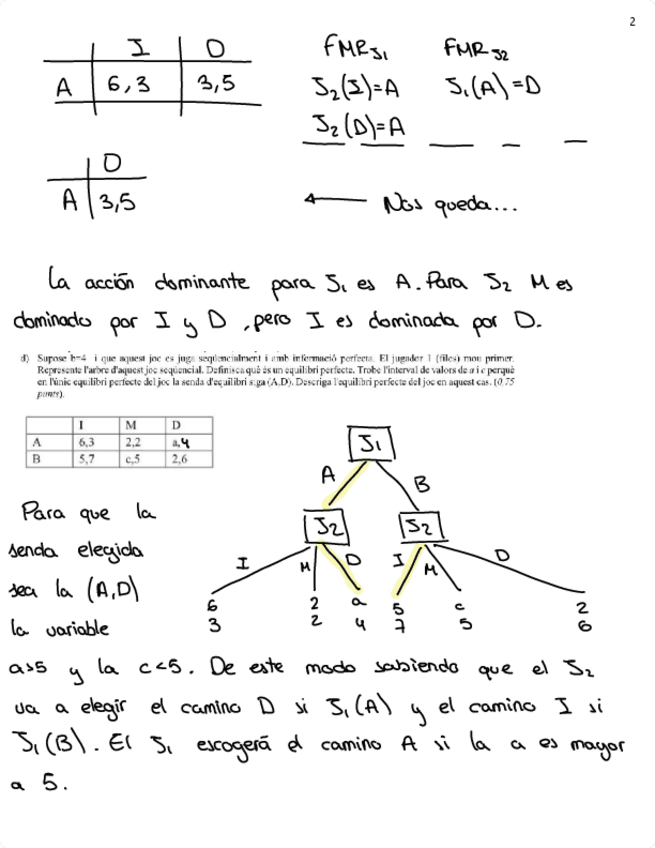 2
I D
A 6,3 3,5
FMRJ1 FMRJ2
J2(I)=A J1(A)=D
J2(D)=A
D
A 3,5
← Nos queda...
La acción dominante para J1 es A. Para J2 M es
dominado por I y D, pero I es dominada por D.
d) Supose b=4 i que aquest joc es juga seqüencialment i amb informació perfecta. El jugador 1 (files) mou primer.
Represente l'arbre d'aquest joc seqüencial. Definisca què és un equilibri perfecte. Trobe l'interval de valors de a i c perquè
en l'únic equilibri perfecte del joc la senda d'equilibri siga (A,D). Descriga l'equilibri perfecte del joc en aquest cas. (0.75
punts).
I M D
A 6,3 2,2 a,4
B 5,7 c,5 2,6
J1
A B
J2 J2
I M D I M D
6 2 a 5 c 2
3 2 4 7 5 6
Para que la
senda elegida
sea la (A,D)
la variable
a>5 y la c<5. De este modo sabiendo que el J2
va a elegir el camino D si J1(A) y el camino I si
J1(B). El J1 escogerá el camino A si la a es mayor
a 5.